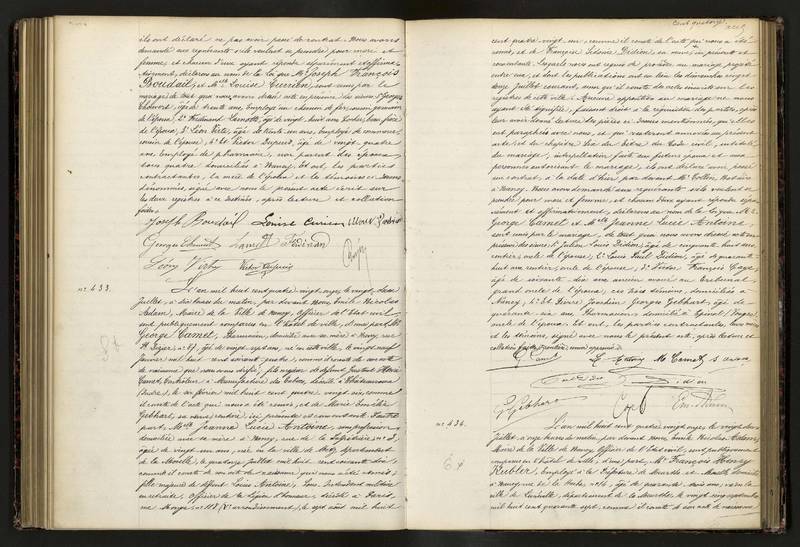 ils ont déclaré ne pas avoir passé de contrat. Nous avons
demandé aux requérants s'ils veulent se prendre pour mari et
femme, et chacun d'eux ayant répondu séparément et affirma-
tivement, déclarons au nom de la loi que Mr Joseph François
Boudail, et Melle Louise Curien, sont unis par le
mariage. De tout quoi nous avons dressé acte en présence des sieurs Georges
âgé de trente ans, Employé au chemin de fer, cousin germain
de l'épouse, 2° Ferdinand âgé de vingt huit ans, beau frère
de l'épouse, 3° Léon âgé de trente un ans, Employé de commerce,
cousin de l'épouse, 4° Et Victor Dupuis, âgé de vingt quatre
ans, Employé de pharmacie, non parent des époux,
tous quatre domiciliés à Nancy. Et ont, les parties
contractantes, la mère de l'époux et les témoins ci-dessus
dénommés, signé avec nous le présent acte écrit sur
les deux registres à ce destinés, après lecture et collation
faites.
Joseph Boudail Louise Curien
Léon Victor Dupuis
N° 433.
L'an mil huit cent quatre vingt onze, le vingt deux
Juillet, à dix heures du matin, par devant Nous, Emile Nicolas
Adam, Maire de la Ville de Nancy, officier de l'Etat civil,
sont publiquement comparus en l'hôtel de ville, d'une part Mr
George Camet, Pharmacien, domicilié avec sa mère à Nancy, rue
St Dizier, n° 67, âgé de vingt sept ans, né en cette ville, le vingt neuf
janvier mil huit cent soixante quatre, comme il conste de son acte
de naissance que nous avons vérifié, fils majeur de défunt
Camet, Contrôleur à Manufacture des tabacs, décédé à Châteauroux
(Indre), le six février mil huit cent quatre vingt six, comme
il conste de l'acte qui nous a été remis, et de Marie
Gebhart, sa veuve, rentière, ici présente et consentante. D'autre
part, Melle Jeanne Lucie Antoine, sans profession,
domiciliée avec sa mère à Nancy, rue de la Pépinière, n° 3,
âgée de vingt un ans, née en la ville de Metz, département
de la Moselle, le quatorze juillet mil huit cent soixante dix,
comme il conste de son acte de naissance qui nous a été remis,
fille majeure de défunt Louis Antoine, Sous Intendant militaire
en retraite, officier de la légion d'honneur, décédé à Paris,
rue Monge, n° 118 (V° arrondissement), le sept août mil huit
Cent quatorze.
cent quatre vingt un, comme il conste de l'acte qui nous a été
remis, et de Françoise Sidonie Didion, sa veuve, ici présente et
consentante. Lesquels nous ont requis de procéder au mariage projeté
entre eux, et dont les publications ont eu lieu les dimanches
Juillet courant, ainsi qu'il conste des actes inscrits sur les
registres de cette ville. Aucune opposition au mariage ne nous
ayant été signifiée, faisant droit à la réquisition des parties, après
leur avoir donné lecture des pièces ci-dessus mentionnées, qu'elles
ont paraphées avec nous, et qui resteront annexées au présent
acte, et du chapitre six du titre du Code civil, intitulé
du mariage, interpellation faite aux futurs époux et aux
personnes autorisant le mariage, ils ont déclaré avoir passé
un contrat, à la date d'hier, par devant Me Notaire
à Nancy. Nous avons demandé aux requérants s'ils veulent se
prendre pour mari et femme, et chacun d'eux ayant répondu sépa-
rément et affirmativement, déclarons au nom de la loi que Mr
George Camet, et Melle Jeanne Lucie Antoine,
sont unis par le mariage, de tout quoi nous avons dressé acte en
présence des sieurs 1° Julien Louis Didion, âgé de cinquante huit ans,
rentier, oncle de l'épouse, 2° Louis Paul Didion, âgé de quarante
huit ans, rentier, oncle de l'épouse, 3° Victor François
âgé de soixante dix ans, ancien avoué au tribunal,
grand oncle de l'épouse, ces trois témoins domiciliés à
Nancy, 4° Et Pierre Joachim Georges Gebhart, âgé de
quarante six ans, Pharmacien, domicilié à Epinal (Vosges),
oncle de l'époux. Et ont, les parties contractantes, leurs mères
et les témoins, signé avec nous le présent acte, après lecture et
collation faites.
G. Camet
G. Gebhart
N° 434.
L'an mil huit cent quatre vingt onze, le vingt deux
Juillet, à onze heures du matin, par devant Nous, Emile Nicolas Adam,
Maire de la Ville de Nancy, officier de l'Etat civil, sont publiquement
comparus en l'hôtel de ville, d'une part, Mr François
Kubler, Employé à la Préfecture de Meurthe et Moselle, domicilié
à Nancy, rue de la n° 16, âgé de quarante trois ans, né en la
ville de Lunéville, département de la Meurthe, le vingt cinq septembre
mil huit cent quarante sept, comme il conste de son acte de naissance